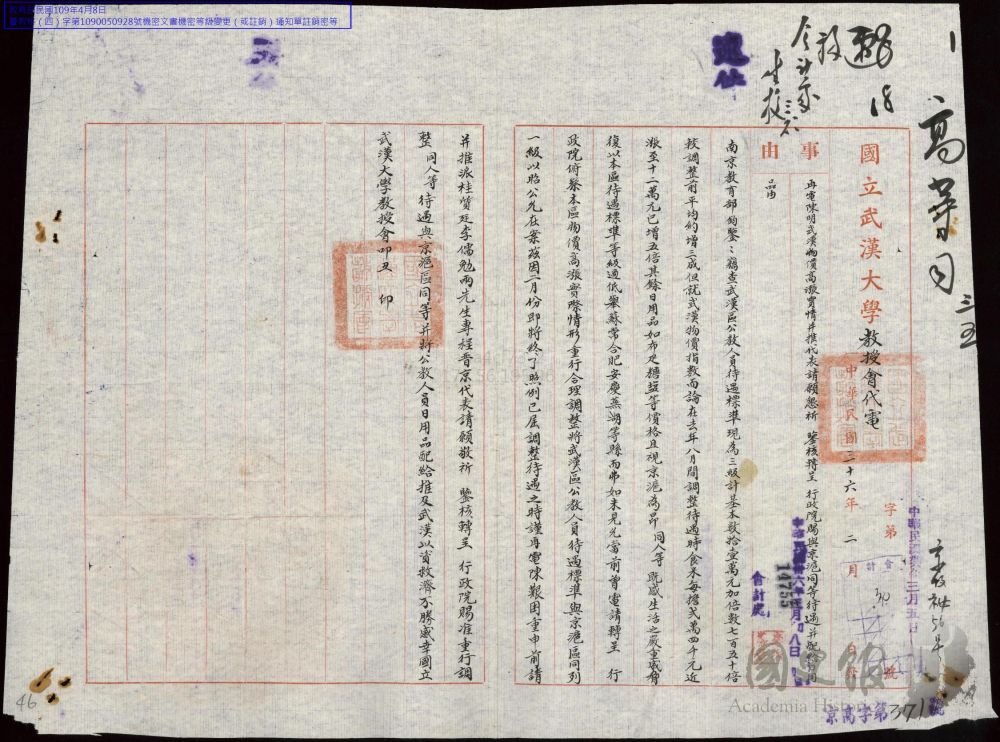 民國109年4月8日
(四)字第1090050928號機密文書機密等級變更(或註銷)通知單註銷密等
高等司
國立武漢大學教授會代電
中華民國三十六年二月 日發
字第 號
事由
再電陳明武漢物價高漲實情并推代表請願懇祈 鑒核轉呈 行政院賜與京滬同等待遇并配給日用品由
南京教育部鈞鑒:竊查武漢區公教人員待遇標準現為三級計基本數拾壹萬元加倍數七百五十倍
較調整前平均約增三成但就武漢物價指數而論在去年八月間調整待遇時食米每擔弍萬四千元近
漲至十二萬元已增五倍其餘日用品如布疋糖鹽等價格且視京滬為昂 同人等 既感生活之嚴重威脅
復以本區待遇標準等級過低 蘇常合肥安慶蕪湖等縣而弗如未見允當前曾電請轉呈 行
政院俯察本區物價高漲實際情形重行合理調整將武漢區公教人員待遇標準與京滬區同列
一級以昭公允在案茲因二月份即將終了照例已屆調整待遇之時謹再電陳艱困重申前請
并推派桂質廷李儒勉兩先生專程晉京代表請願敬祈 鑒核轉呈 行政院賜准重行調
整 同人等 待遇與京滬區同等并將公教人員日用品配給推及武漢以資救濟不勝感幸國立
武漢大學教授會叩丑 印
14755
會計處
京高字第371號
國史館
Academia Historica
46